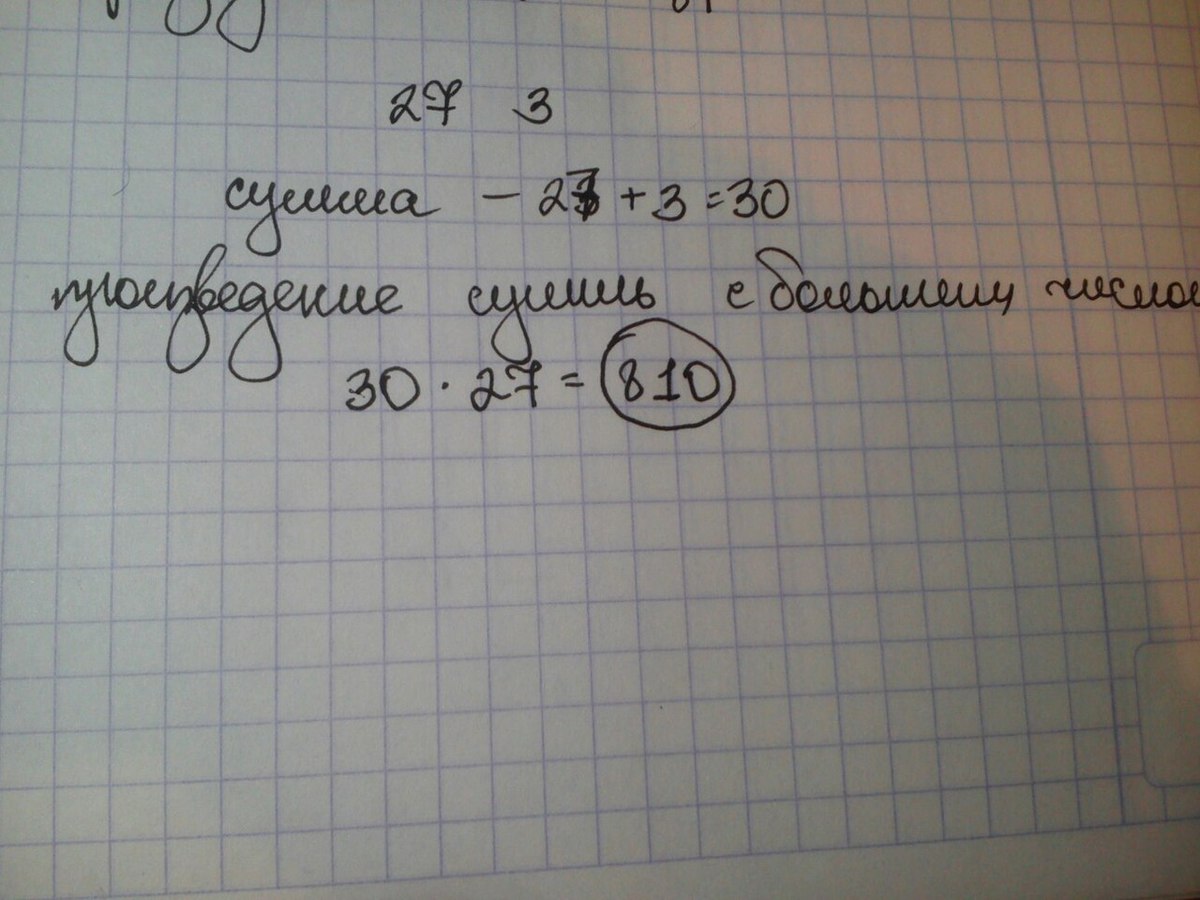 27 3
сумма - 27 + 3 = 30
произведение суммы с большим числом
30 · 27 = 810